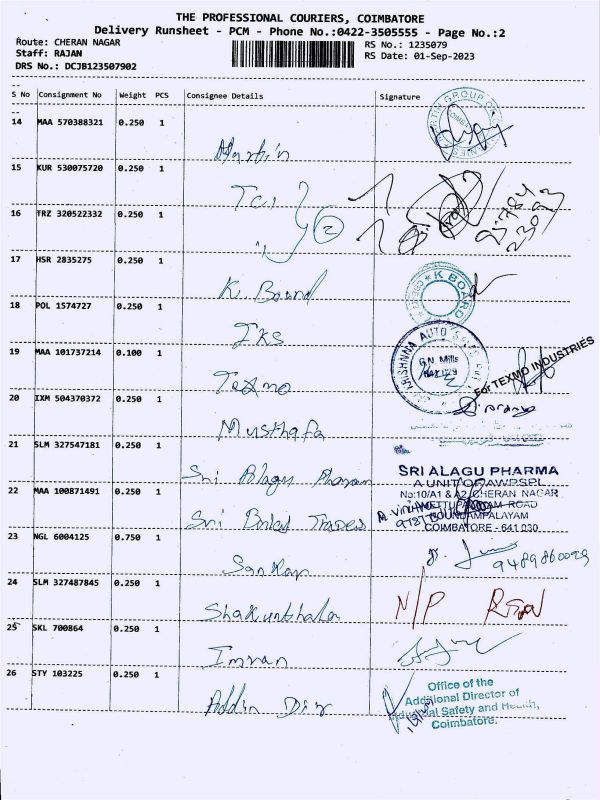 THE PROFESSIONAL COURIERS, COIMBATORE
Delivery Runsheet - PCM - Phone No.:0422-3505555 - Page No.:2
Route: CHERAN NAGAR
RS No.: 1235079
Staff: RAJAN
RS Date: 01-Sep-2023
DRS No.: DCJB123507902
S No Consignment No Weight PCS Consignee Details Signature
14 MAA 570388321 0.250 1
Martin
15 KUR 530075720 0.250 1
TCI
16 TRZ 320522332 0.250 1
2
17 HSR 2835275 0.250 1
K. Board
K BOARD
18 POL 1574727 0.250 1
JKS
KRISHNNA AUTO
G.N. Mills
19 MAA 101737214 0.100 1
Texmo
For TEXMO INDUSTRIES
20 IXM 504370372 0.250 1
Musthafa
21 SLM 327547181 0.250 1
Sri Alagu Pharam
SRI ALAGU PHARMA
A UNIT OF AWPSPL
No:10/A1 & A2, CHERAN NAGAR
METTUPALAYAM ROAD
GOUNDAMPALAYAM
COIMBATORE - 641 030
22 MAA 100871491 0.250 1
Sri Traders
23 NGL 6004125 0.750 1
Sankar
9489860029
24 SLM 327487845 0.250 1
Shakunthala
N/P
25 SKL 700864 0.250 1
Imran
26 STY 103225 0.250 1
Addin Dir
Office of the
Additional Director of
Industrial Safety and Health,
Coimbatore.